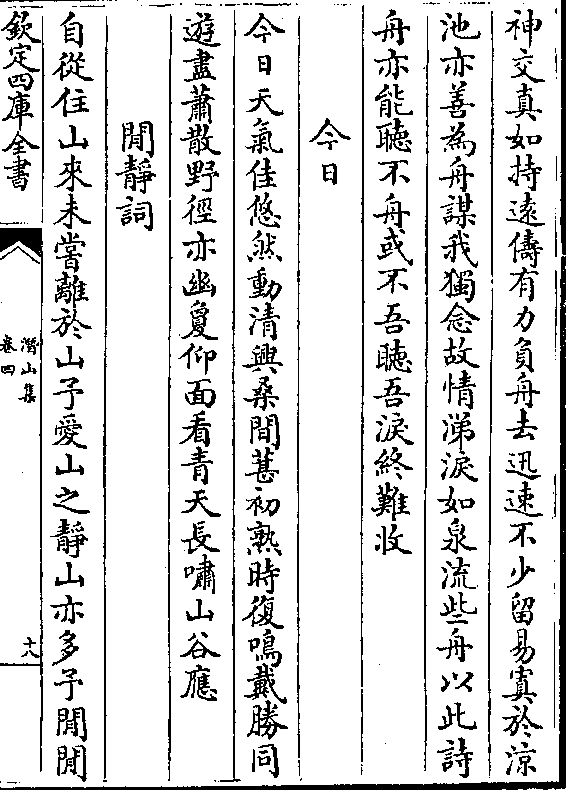 神交真如持遠儔有力負舟去迅速不少留易寘於涼
池亦善為舟謀我獨念故情涕淚如泉流些舟以此詩
舟亦能聽不舟或不吾聽吾淚終難收
今日
今日天氣佳悠然動清興桑間葚初熟時復鳴戴勝同
遊盡蕭散野徑亦幽敻仰面看青天長嘯山谷應
閒靜詞
自從住山來未嘗離於山予愛山之靜山亦多予閒閒
欽定四庫全書
潛山集
卷四
十八